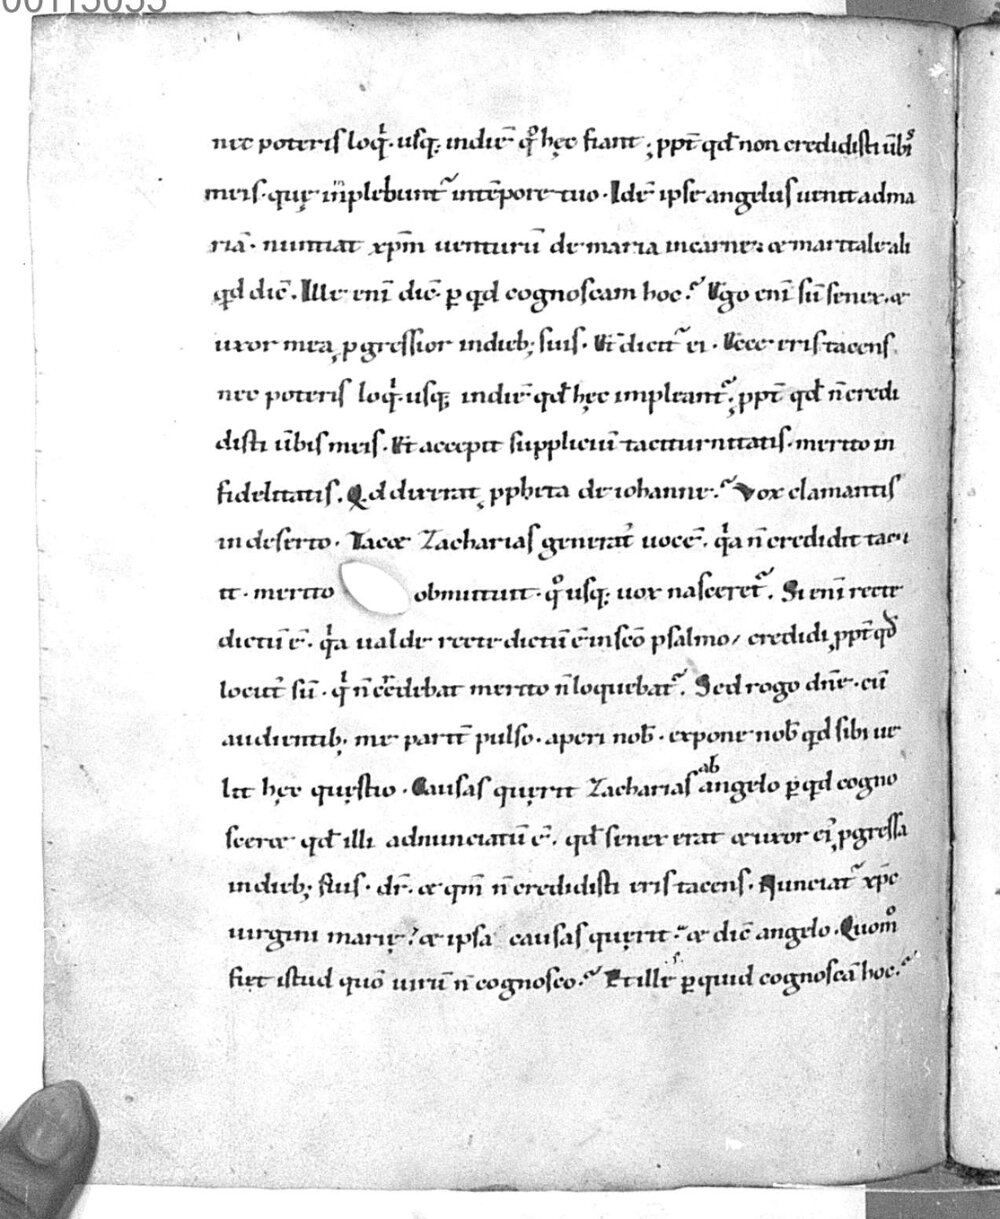 00115035
nec poteris loq̇. usq; indiē q̊ hęc fiant; ppt̄ qđ non credidisti ūbis
meis. quę inplebunt᷑ intēpore tuo. Idē ipse angelus uenit adma
riā. nuntiat xp̄m uenturū de maria incarne
qd dic̄. Ille eni̅ dic̄. ꝑ qd cognoscam hoc. Ego eni̅ sū senex. &
uxor mea ꝓgressior indieb; suis. Et dicit᷑ ei. Ecce eris tacens
nec poteris loq̇. usq; indiē qđ hęc impleant᷑; ppt̄ qđ n̄ credi
disti ūbis meis. Et accepit suppliciū taciturnitatis. merito in
fidelitatis. Qd dixerat ꝓpheta de iohanne. Vox clamantis
indeserto. Tac& Zacharias generat᷑ uocē. q̇a n̄ credidit tacu
it. merito obmutuit. q̊ usq; uox nasceret᷑. Si eni̅ recte
dictū ē. q̇a ualde recte dictū ē inscō psalmo, credidi ppt̄ qđ
locut᷑ sū. q̇ n̄ credebat merito n̄ loquebat᷑. Sed rogo dn̄e. cū
audientib; me parit̄ pulso. aperi nob̄. expone nob̄ qd sibi ue
lit hęc quęstio. Causas quęrit Zacharias ab angelo ꝑ qd cogno
scer& qđ illi adnunciatū ē. qđ senex erat & uxor ei᷒ ꝓgressa
indieb; suis. dr̄. & qm̄ n̄ credidisti eris tacens. Nunciat᷑ xp̄c
uirgini marię. & ipsa causas quęrit. & dic̄ angelo. Quom̊
fiet istud quō uirū n̄ cognosco. Et ille ꝑ quid cognoscā hoc.